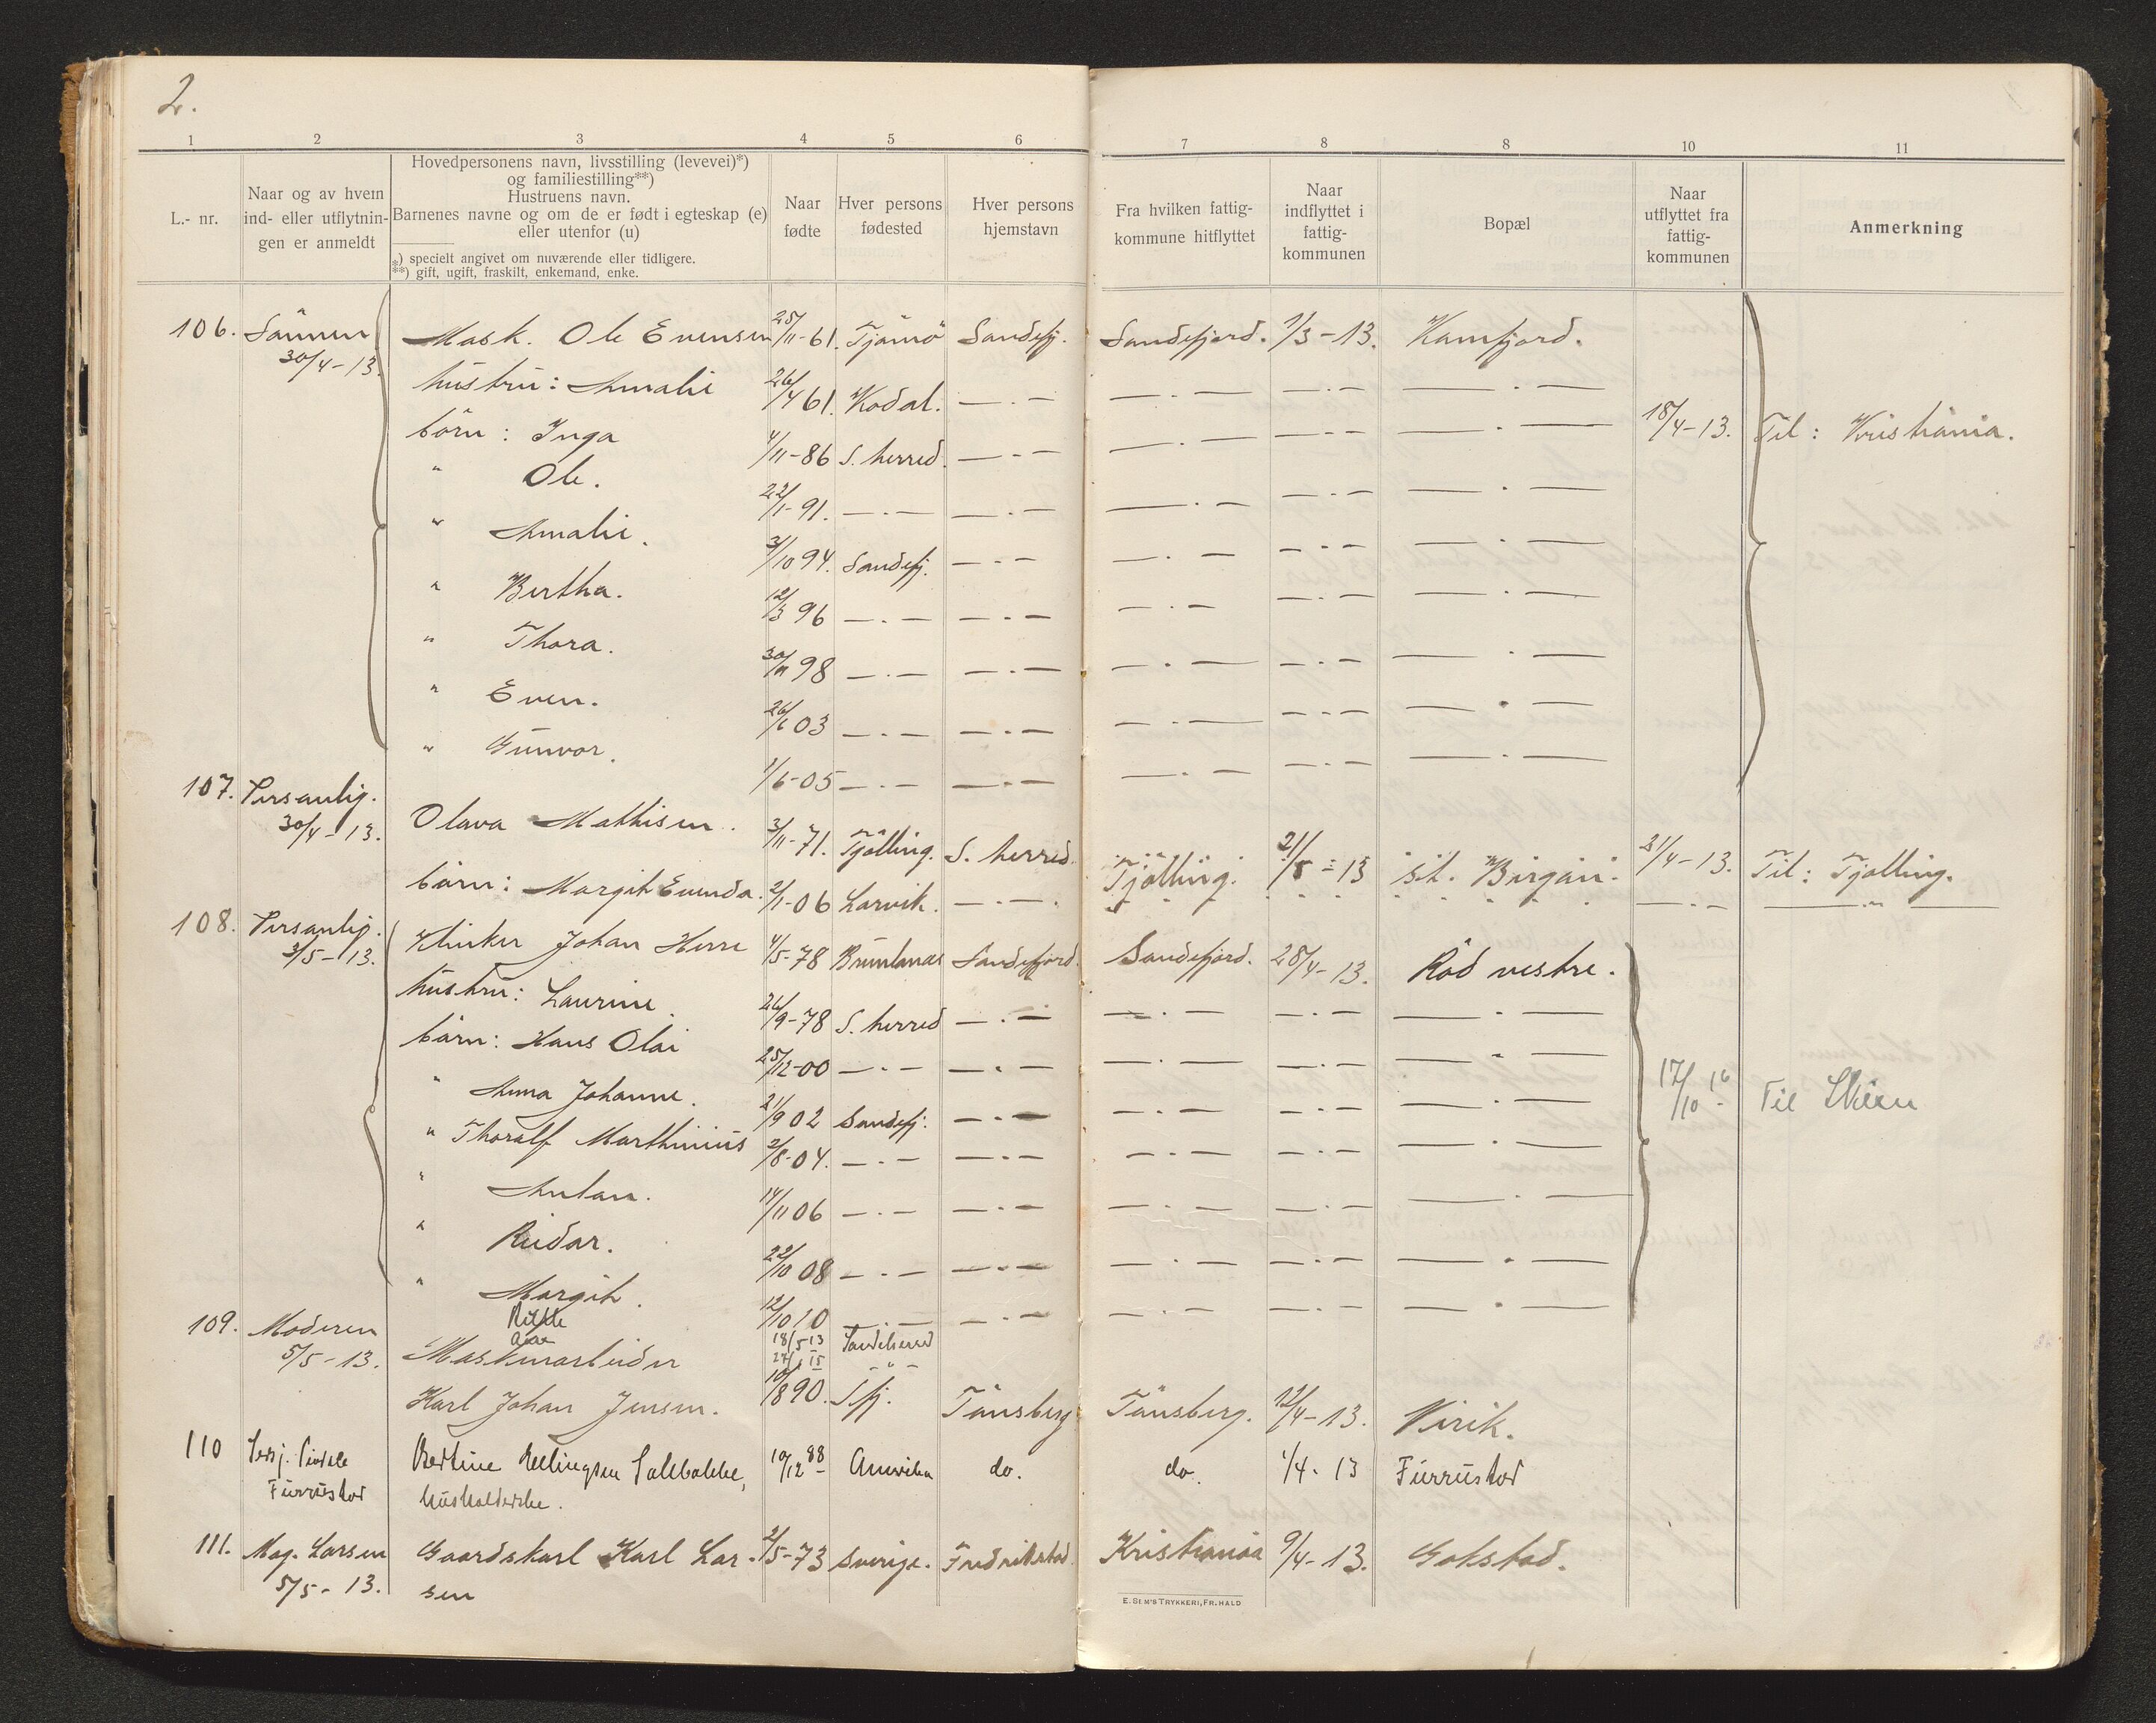 2.
1 2 3 4 5 6 7 8 8 10 11
L.- nr.
Naar og av hvem
ind- eller utflytnin-
gen er anmeldt
Hovedpersonens navn, livsstilling (levevei)*)
og familiestilling**)
Hustruens navn.
Barnenes navne og om de er født i egteskap (e)
eller utenfor (u)
*) specielt angivet om nuværende eller tidligere.
**) gift, ugift, fraskilt, enkemand, enke.
Naar
fødte
Hver persons
fødested
Hver persons
hjemstavn
Fra hvilken fattig-
kommune hitflyttet
Naar
indflyttet i
fattig-
kommunen
Bopæl
Naar
utflyttet fra
fattig-
kommunen
Anmerkning
106. Sönnen Mask. Ole Evensen 25/11-61. Tjömö Sandefj. Sandefjord. 1/3-13. Kamfjord.
30/4-13.
hustru: Amalie 26/4 61. Kodal. —.— —.— —.— —.—
börn: Inga 4/11-86 S. herred. —.— —.— —.— —.— 18/4-13. Til: Kristiania.
" Ole. 22/1-91. —.— —.— —.— —.— —.—
" Amalie. 3/10 94. Sandefj. —.— —.— —.— —.—
" Bertha. 12/3 96 —.— —.— —.— —.— —.—
" Thora. 30/11 98 —.— —.— —.— —.— —.—
" Even. 26/6 03 —.— —.— —.— —.— —.—
" Gunvor. 1/6-05 —.— —.— —.— —.— —.—
107. Personlig. Olava Mathisen. 3/11-71. Tjölling. S. herred. Tjölling. 21/5-13 st. Bergan. 21/4-13. Til: Tjölling.
30/4-13.
börn: Margit Evenda. 2/1-06 Larvik. —.— " " " " " " " —.— —"—
108. Personlig. Klinker Johan Herre 4/5-78 Brunlanæs Sandefjord. Sandefjord. 28/4-13. Röd vestre.
3/5-13.
hustru: Laurine. 26/9-78 S. herred —.— —.— —.— —.—
börn: Hans Olai 25/12-00 —.— —.— —.— —.— —.—
" Anna Johanne. 21/9 02 Sandefj. —.— —.— —.— —.— 17/10-16 Til Skien
" Thoralf Marthinius 2/8-04. —.— —.— —.— —.— —.—
" Anton. 14/11 06 —.— —.— —.— —.— —.—
" Reidar. 22/10 08 —.— —.— —.— —.— —.—
" Margit. 12/10 10 —.— —.— —.— —.— —.—
18/5 13 Sandeherred
15 " "
109. Moderen Maskinarbeider
5/5-13.
Karl Johan Jensen. 10/8 90. Sfj. Tönsberg Tönsberg. 12/4-13. Virik.
110 Furrustad Bertine husholderske. 10/12 88 do. do. 1/4-13 Furrustad
111. Mag. Larsen Gaardskarl Karl Lar- 2/5-73 Sverige. Fredrikstad. Kristiania 9/4-13. Gokstad.
5/5-13. sen
E. SEM'S TRYKKERI, FR.HALD